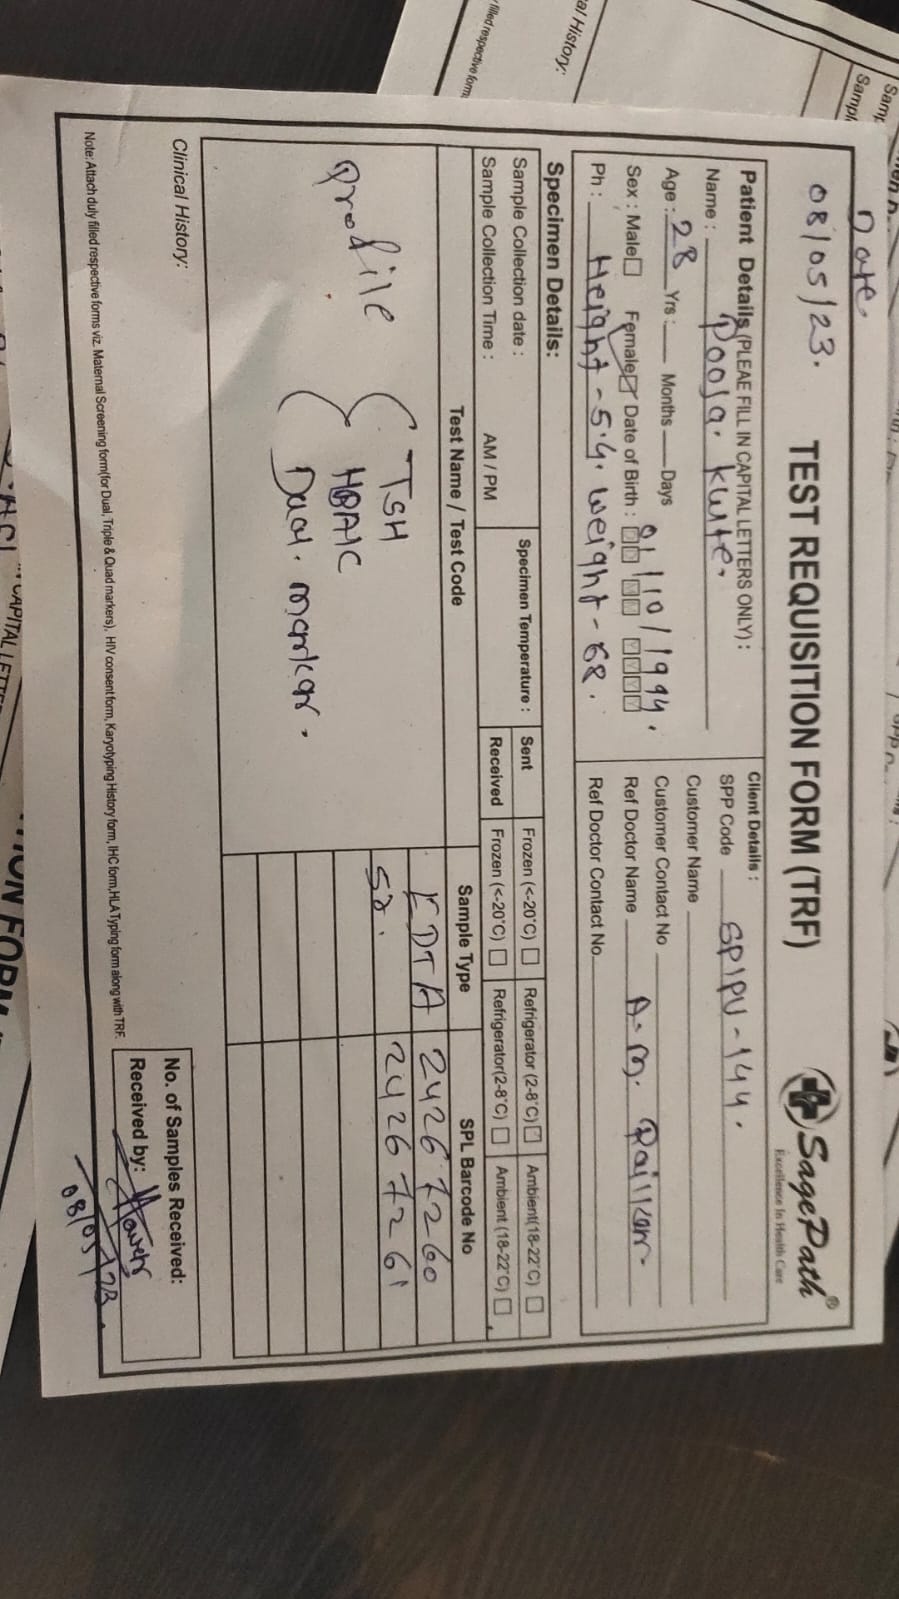 Date
08/05/23.
TEST REQUISITION FORM (TRF)
SagePath®
Excellence In Health Care
Patient Details (PLEAE FILL IN CAPITAL LETTERS ONLY) :
Name : Pooja. kute.
Age : 28 Yrs : Months Days
Sex : Male Female Date of Birth : 01/10/1994.
DD MM YYYY
Ph : Height - 5.4. weight - 68.
Client Details :
SPP Code SPIPU - 144.
Customer Name
Customer Contact No
Ref Doctor Name A. M. Raikar
Ref Doctor Contact No.
Specimen Details:
Sample Collection date :
Sample Collection Time : AM / PM
Specimen Temperature :
Sent Frozen (<-20°C) Refrigerator (2-8°C) Ambient(18-22°C)
Received Frozen (<-20°C) Refrigerator(2-8°C) Ambient (18-22°C)
Test Name / Test Code Sample Type SPL Barcode No
TSH EDTA 24267260
HBA1C SR. 24267261
Profile
Dual. marker.
Clinical History:
No. of Samples Received:
Received by:
08/05/23.
Note: Attach duly filled respective forms viz. Maternal Screening form(for Dual, Triple & Quad markers), HIV consent form, Karyotyping History form, IHC form,HLA Typing form along with TRF.
al History:
filled respective form
Sampl
CAPITAL LETTE
ION FORM